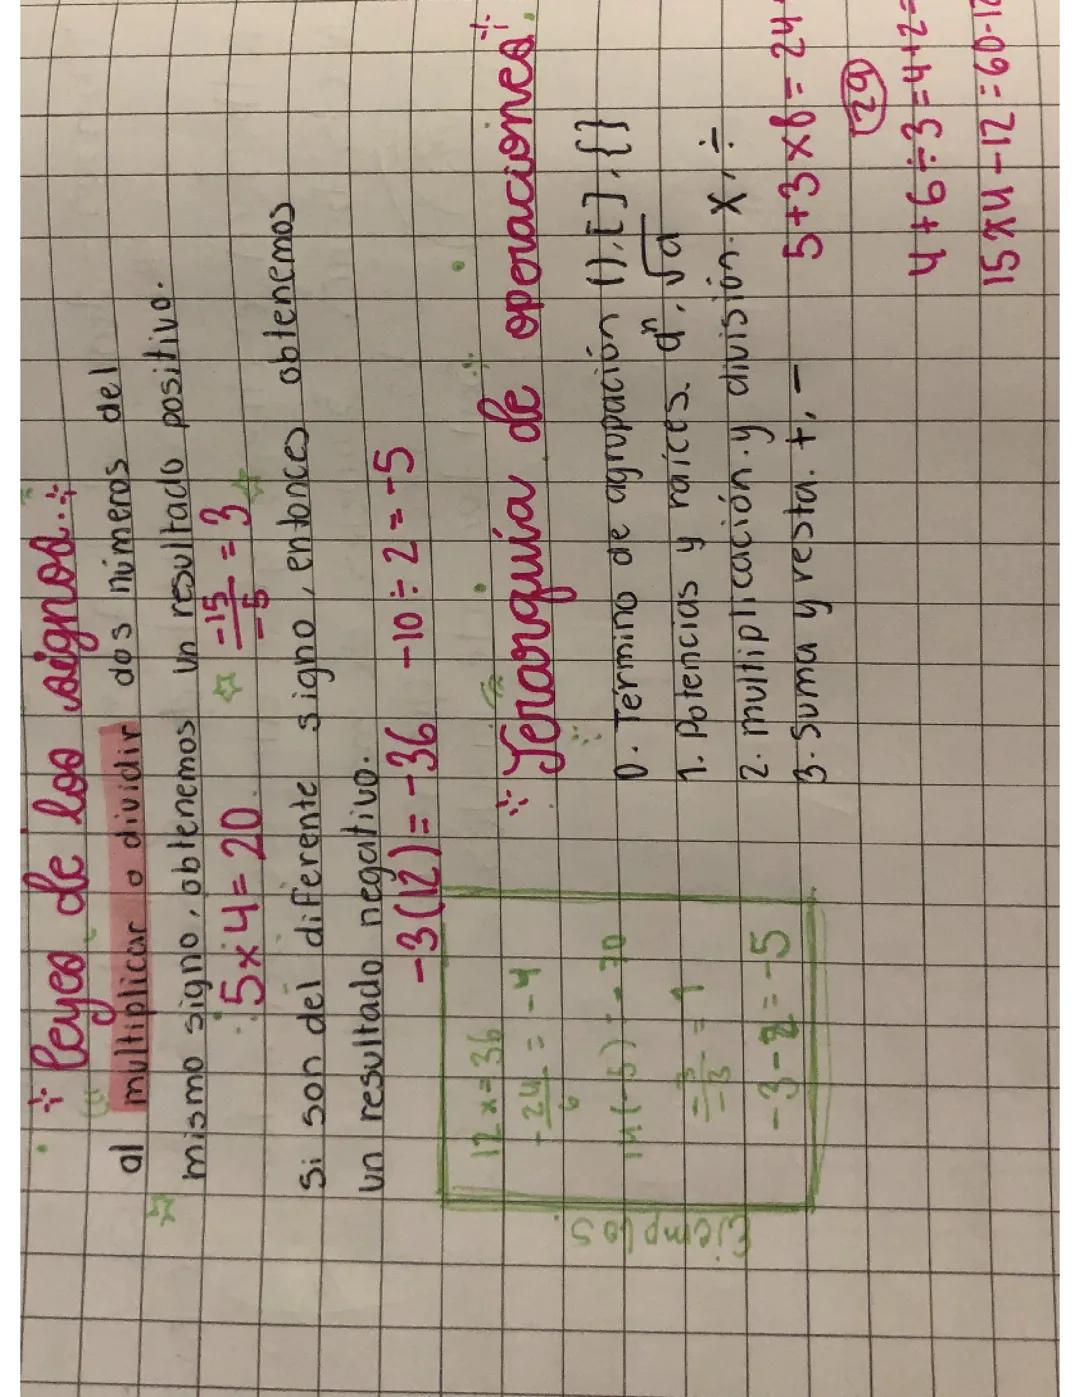 Leyes de los signos
al multiplicar o dividir dos números del
mismo signo, obtenemos un resultado positivo.
5x4=20 -15/-5 = 3
Si son del diferente signo, entonces obtenemos
un resultado negativo.
-3(12)=-36 -10÷2=-5
Ejemplos.
12x=36
-24/6 = -4
14(-5)=-70
-3/-3 = 1
-3-2=-5
Jerarquía de operaciones.
0. Término de agrupación (),[],{}
1. Potencias y raíces. aⁿ, √a
2. multiplicación y división. x, ÷
3. Suma y resta. +, -
5+3x8=24+
(29)
4+6÷3=4+2=
15x4-12=60-12